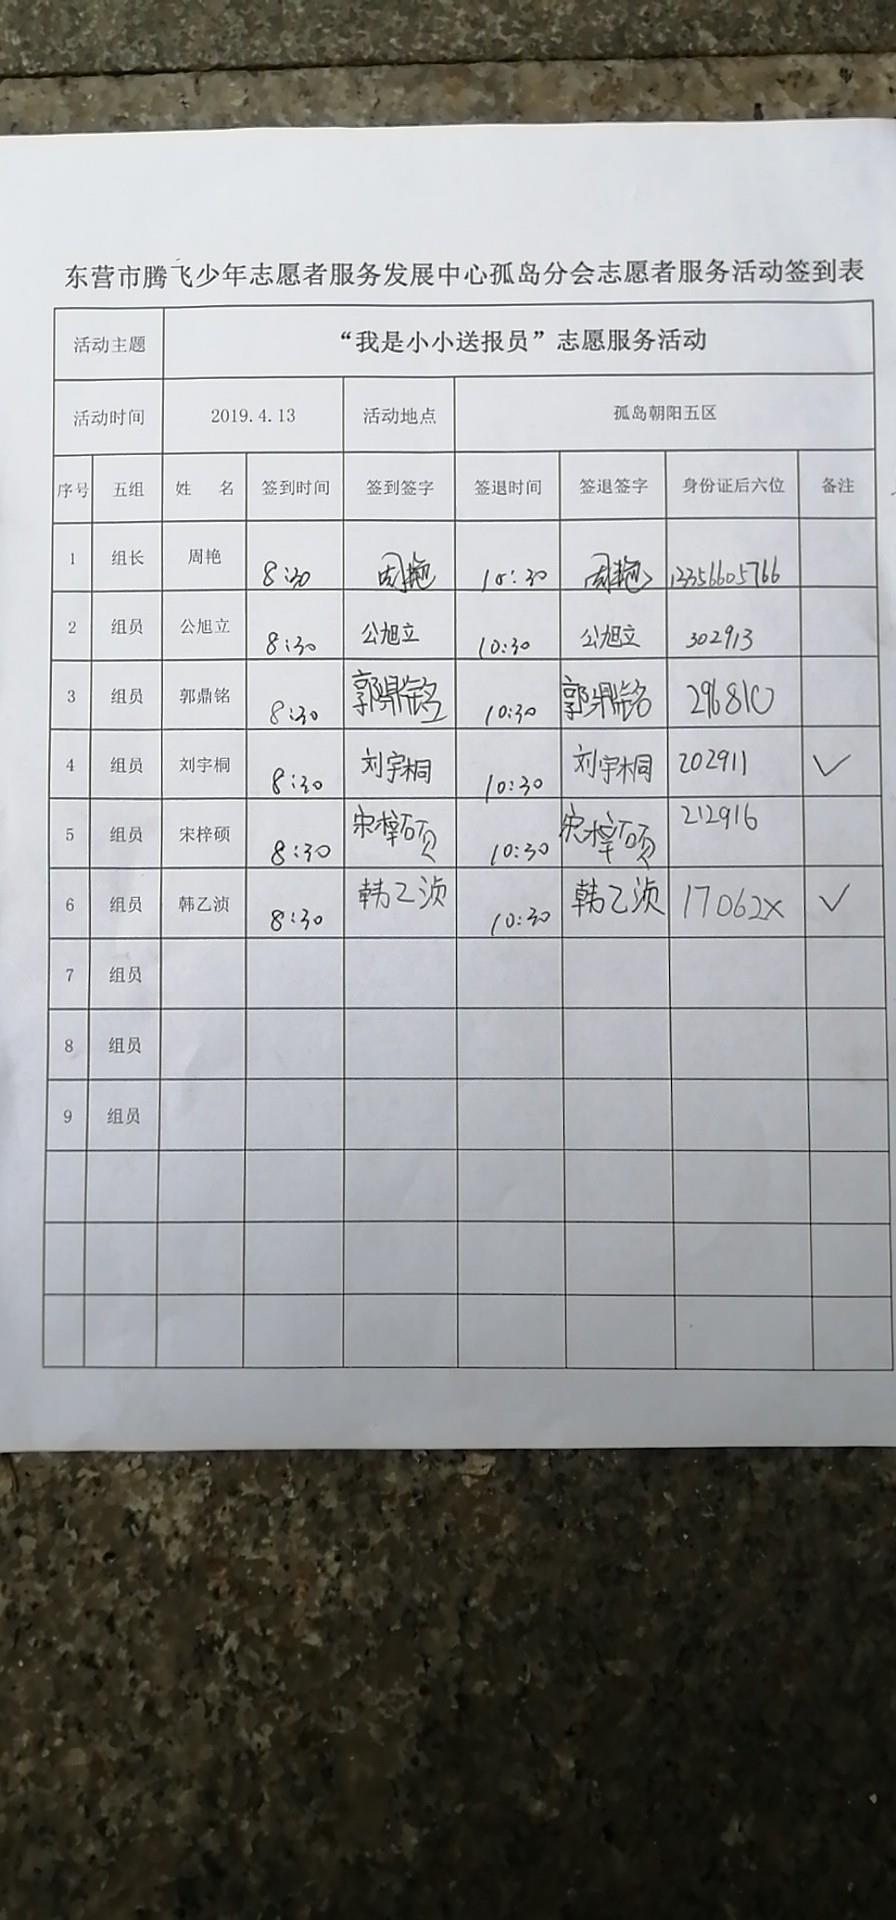 东营市腾飞少年志愿者服务发展中心孤岛分会志愿者服务活动签到表
活动主题 “我是小小送报员”志愿服务活动
活动时间 2019.4.13 活动地点 孤岛朝阳五区
序号 五组 姓 名 签到时间 签到签字 签退时间 签退签字 身份证后六位 备注
1 组长 周艳 8:30 周艳 10:30 周艳 13356605766
2 组员 公旭立 8:30 公旭立 10:30 公旭立 302913
3 组员 郭鼎铭 8:30 郭鼎铭 10:30 郭鼎铭 296810
4 组员 刘宇桐 8:30 刘宇桐 10:30 刘宇桐 202911 ✓
5 组员 宋梓硕 8:30 宋梓硕 10:30 宋梓硕 212916
6 组员 韩乙浈 8:30 韩乙浈 10:30 韩乙浈 17062X ✓
7 组员
8 组员
9 组员